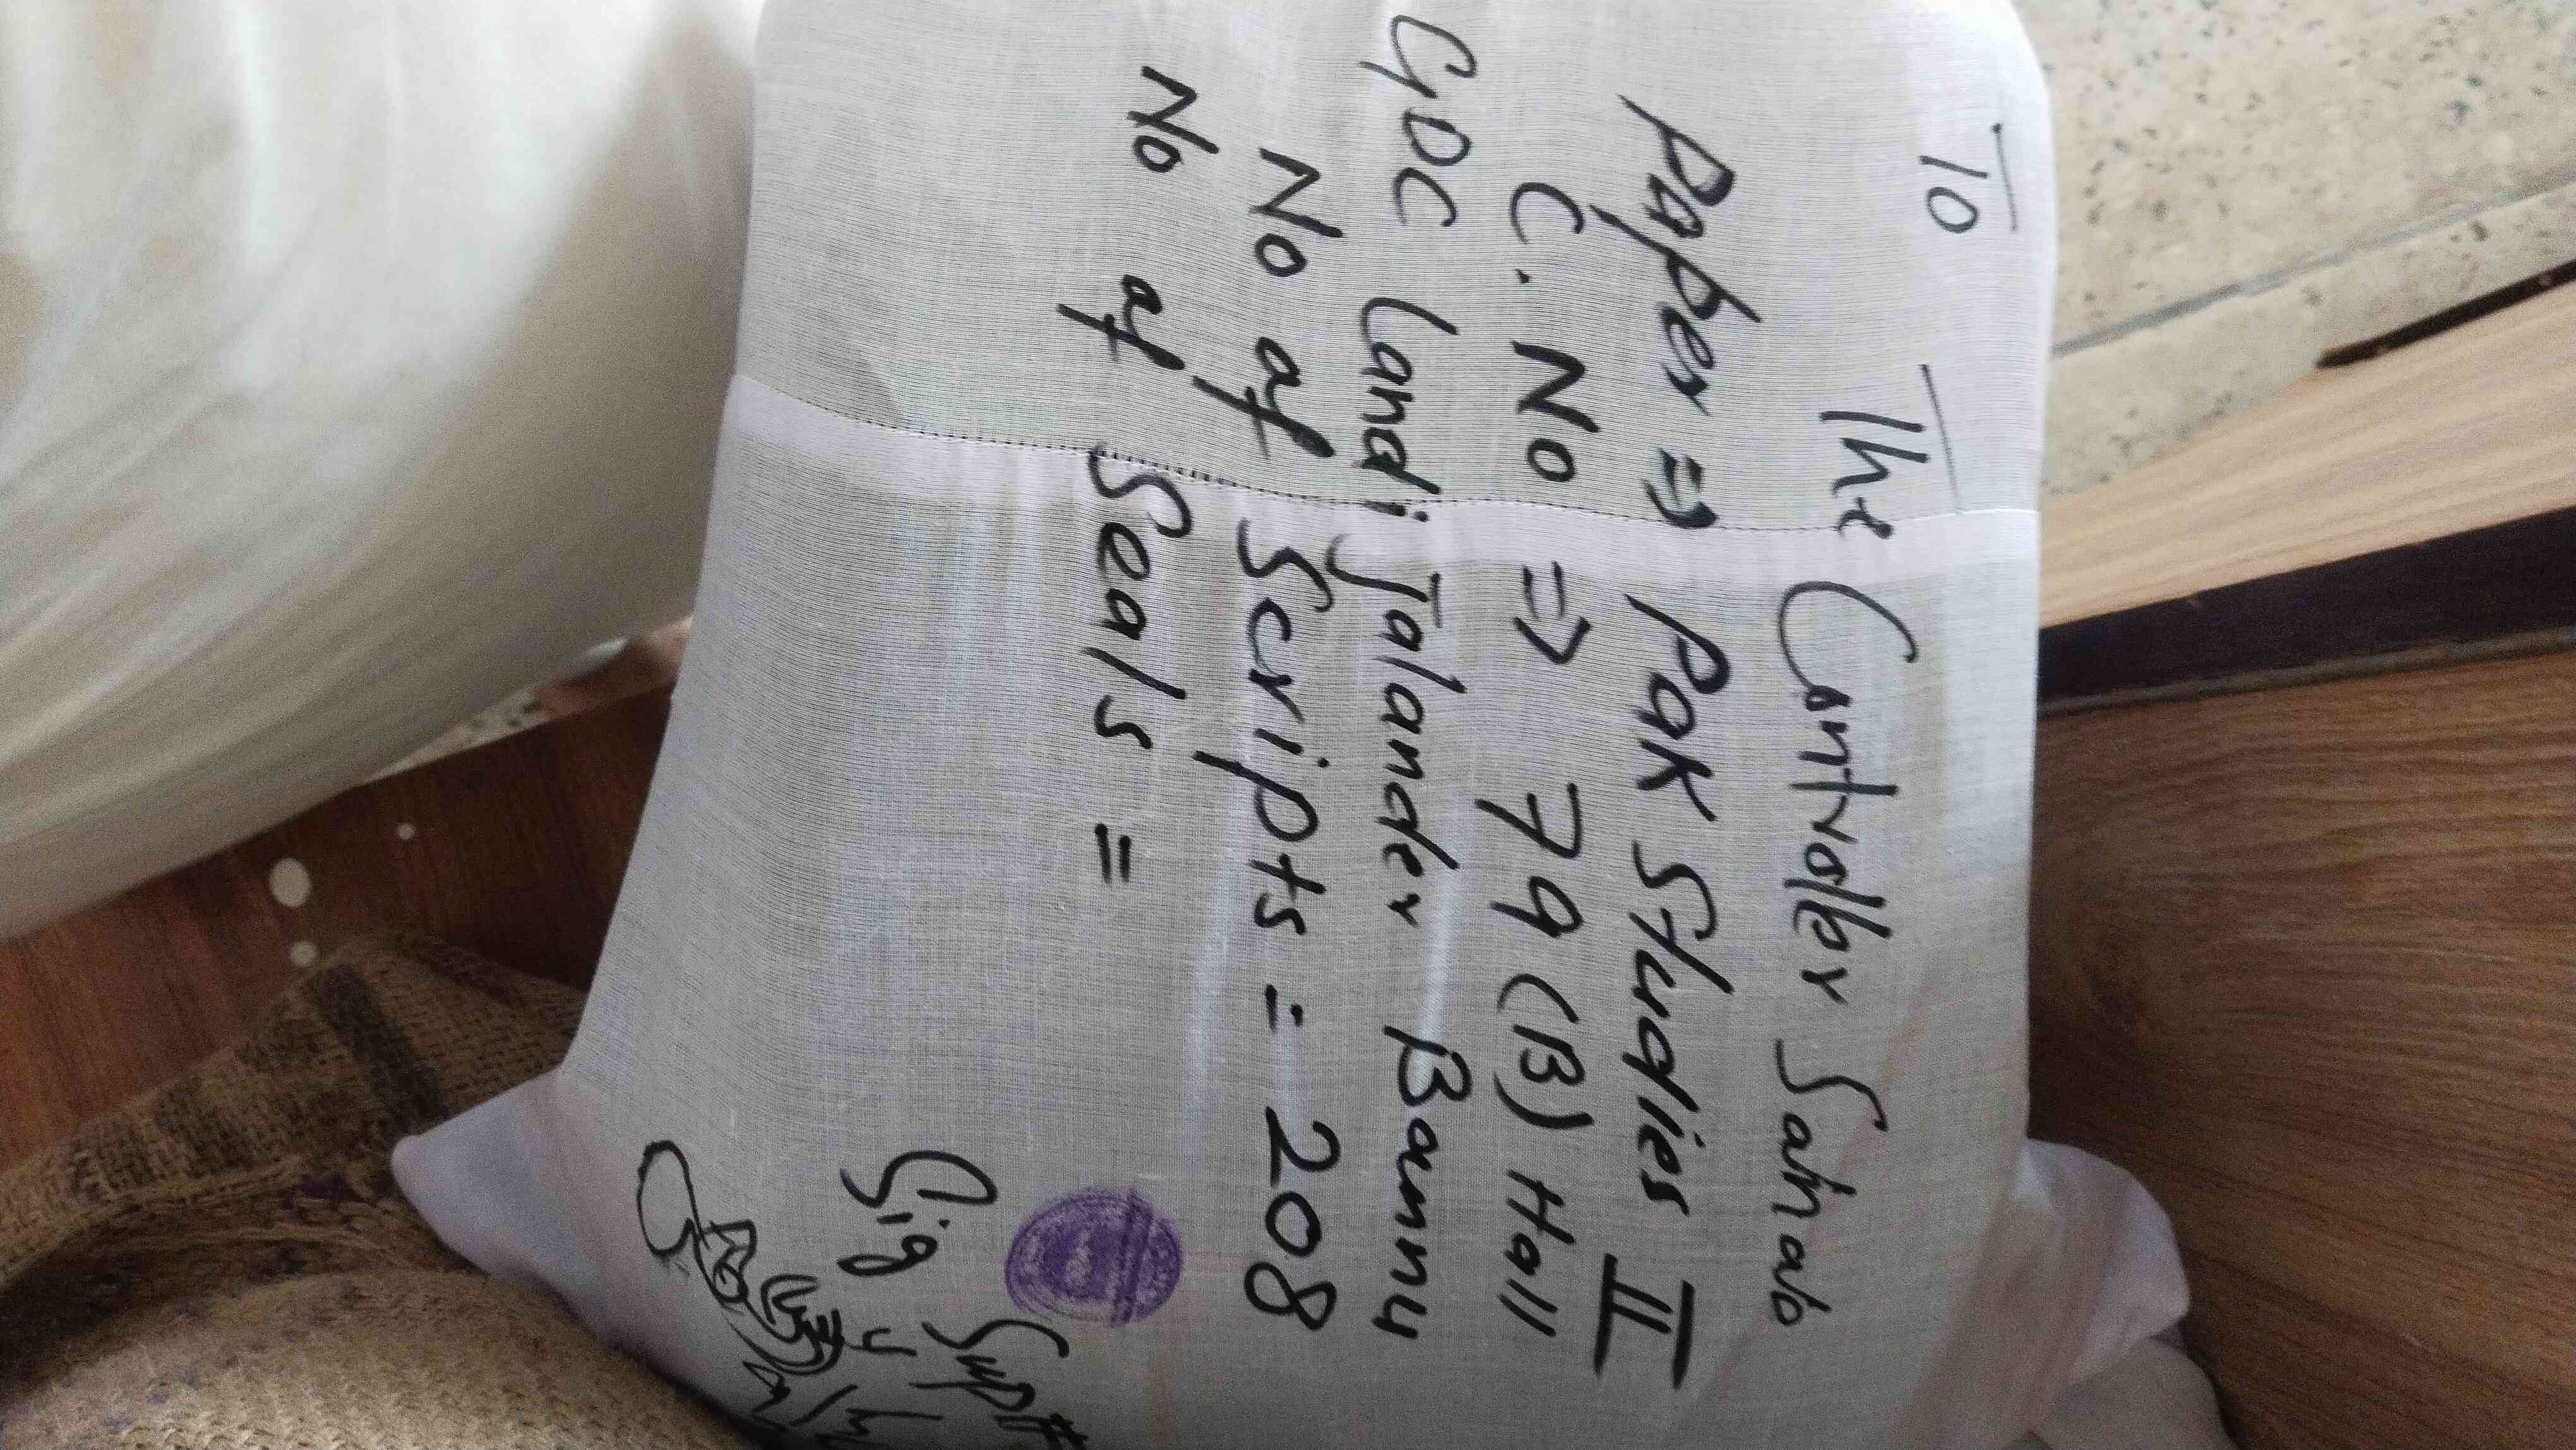 To The Controller Sahab
Paper => Pak Studies II
C. No => 79 (B) Hall
GDC Landi Jalander Bannu
No of Scripts = 208
No of Seals =
Suptt
Sig